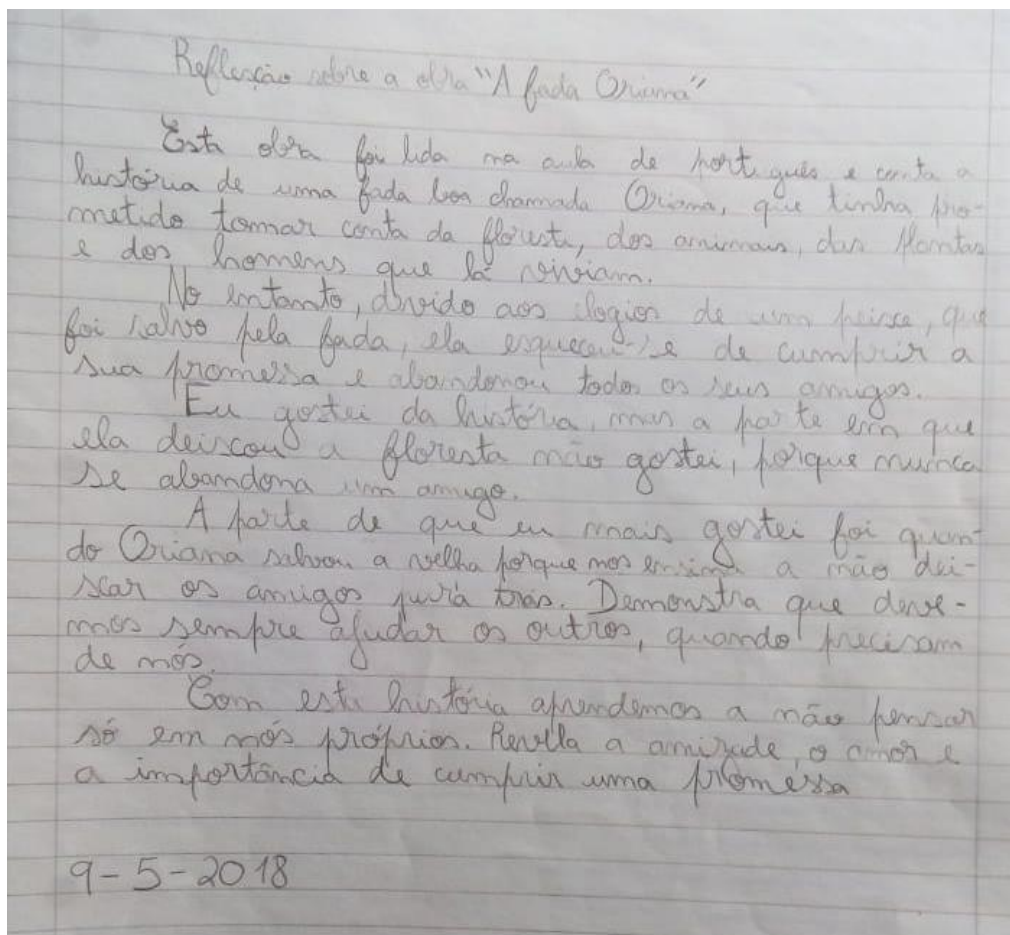 Reflecção sobre a obra "A fada Oriana"
Esta obra foi lida na aula de português e conta a
história de uma fada boa chamada Oriana, que tinha pro-
metido tomar conta da floresta, dos animais, das plantas
e dos homens que lá viviam.
No entanto, devido aos elogios de um peixe, que
foi salvo pela fada, ela esqueceu-se de cumprir a
sua promessa e abandonou todos os seus amigos.
Eu gostei da história, mas a parte em que
ela deixou a floresta não gostei, porque nunca
se abandona um amigo.
A parte de que eu mais gostei foi quan-
do Oriana salvou a velha porque nos ensina a não dei-
xar os amigos para trás. Demonstra que deve-
mos sempre ajudar os outros, quando precisam
de nós.
Com esta história aprendemos a não pensar
só em nós próprios. Revela a amizade, o amor e
a importância de cumprir uma promessa
9-5-2018